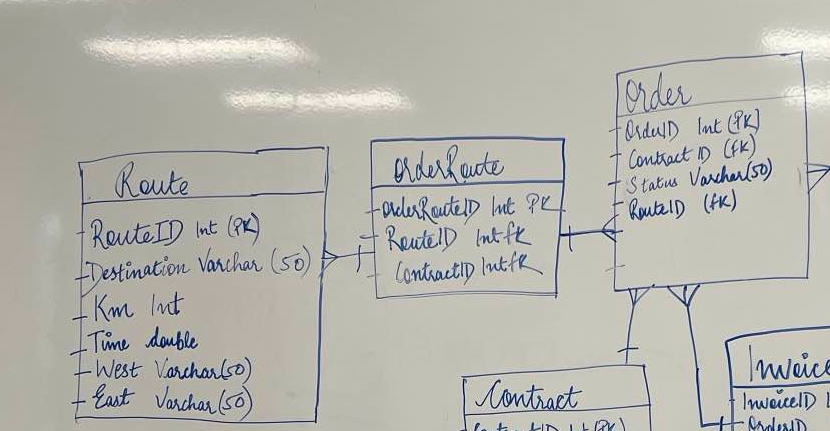 Route
RouteID Int (PK)
Destination Varchar (50)
Km Int
Time double
West Varchar(50)
East Varchar(50)
OrderRoute
OrderRouteID Int PK
RouteID Int fk
ContractID Int fk
Order
OrderID Int (PK)
Contract ID (fk)
Status Varchar(50)
RouteID (fk)
Contract
Invoice
InvoiceID I
OrderID